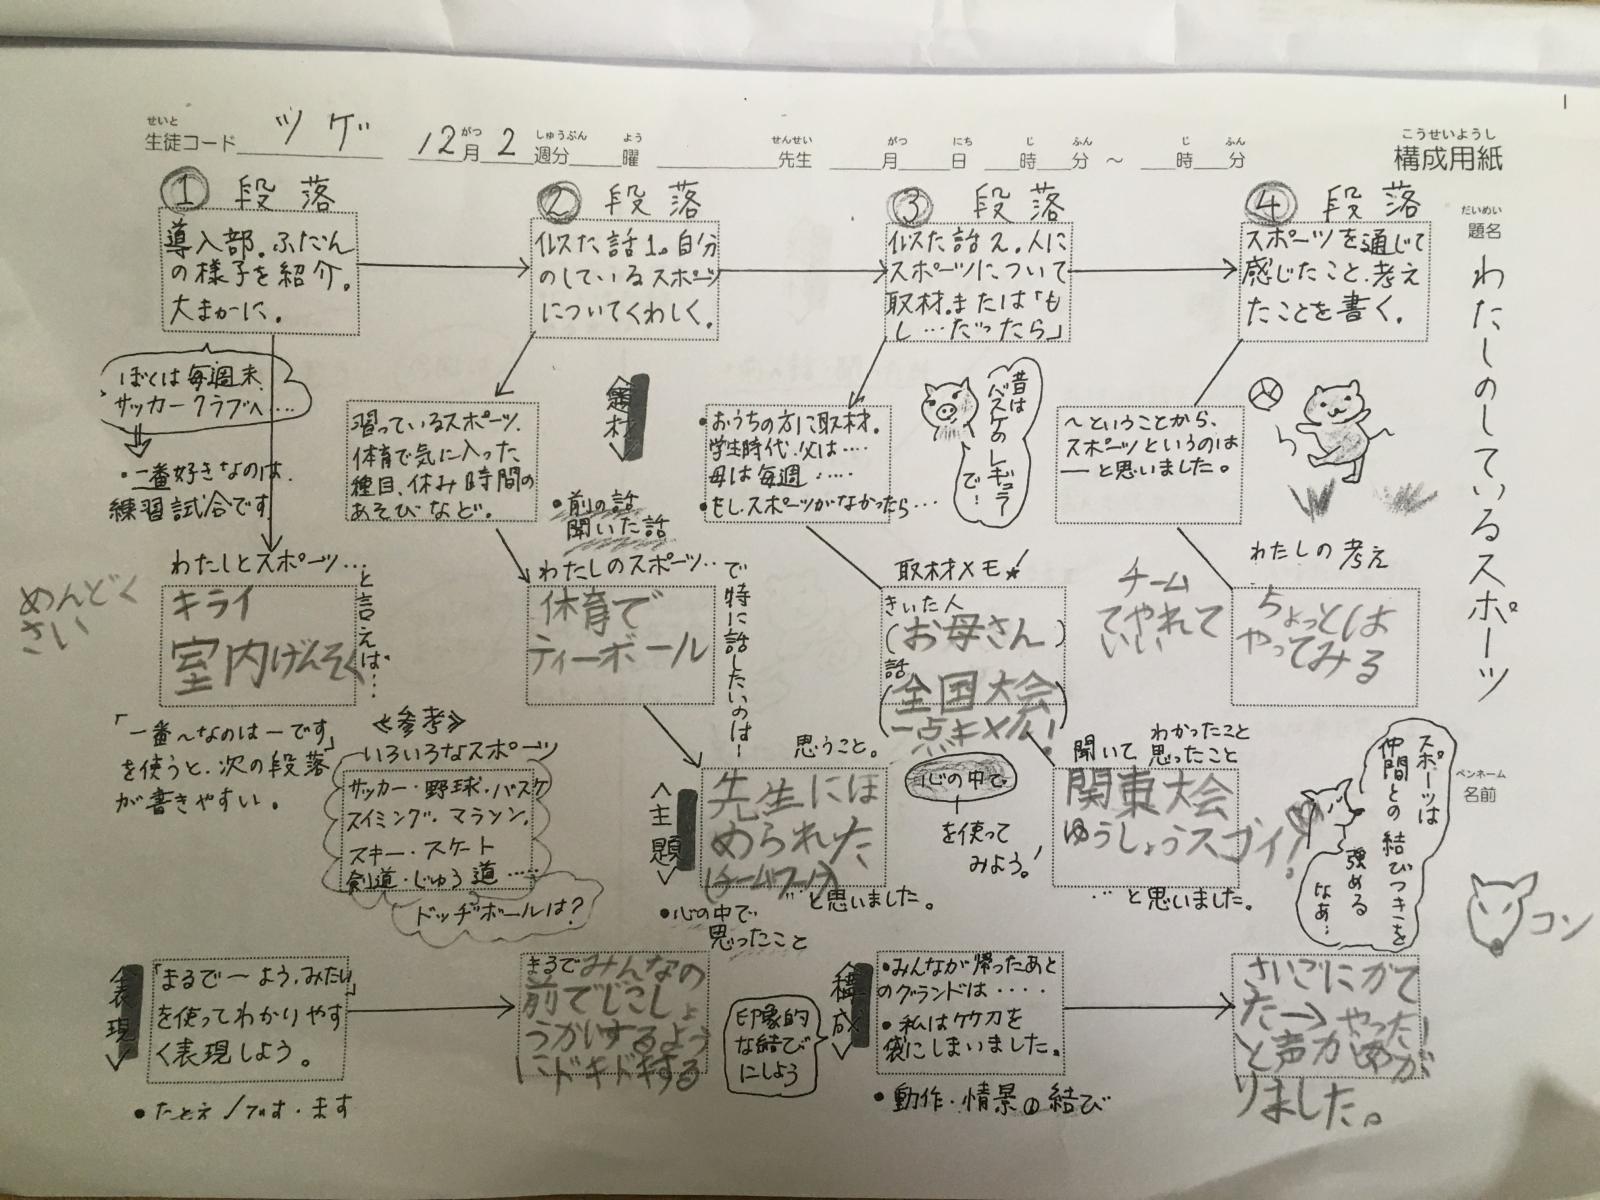 せいと
生徒コード ツゲ
がつ しゅうぶん よう
12月2週分 曜
せんせい
先生
がつ にち じ ふん じ ふん
月 日 時 分 ～ 時 分
こうせいようし
構成用紙
だいめい
題名
わたしのしているスポーツ
ペンネーム
名前
コン
① 段落
導入部。ふだん
の様子を紹介。
大まかに。
ぼくは毎週末、
サッカークラブへ…
・一番好きなのは、
練習試合です
わたしとスポーツ…
と言えば…
めんどく
さい
キライ
室内げんそく
「一番～なのは－です」
を使うと、次の段落
が書きやすい。
≪参考≫
いろいろなスポーツ
サッカー・野球・バスケ
スイミング、マラソン、
スキー・スケート
剣道・じゅう道……
ドッヂボールは？
② 段落
似た話1。自分
のしているスポーツ
についてくわしく。
習っているスポーツ、
体育で気に入った
種目、休み時間の
あそびなど。
＜題材＞
・前の話
聞いた話
わたしのスポーツ…
で特に話したいのは－
体育で
ティーボール
思うこと。
＜主題＞
先生にほ
められた
(チームワーク)
…と思いました。
・心の中で
思ったこと
③ 段落
似た話え。人に
スポーツについて
取材。または「も
し…だったら」
・おうちの方に取材。
学生時代、父は……
母は毎週……
・もし、スポーツがなかったら…
昔は
バスケの
レギュラー
で！
取材メモ★
きいた人
(お母さん)
話
(全国大会
一点キメル！)
心の中で、
を使って
みよう！
聞いて わかったこと
思ったこと
関東大会
ゆうしょうスゴイ！
…と思いました。
④ 段落
スポーツを通じて
感じたこと、考え
たことを書く。
～ということから、
スポーツというのは
－と思いました。
わたしの考え
チーム
でやれて
いい
ちょっとは
やってみる
スポーツは
仲間との結びつきを
強める
なあ…
＜表現＞
「まるで－よう、みたい」
を使ってわかりやす
く表現しよう。
・たとえ／です・ます
まるでみんなの
前でじこしょ
うかいするよう
にドキドキする
印象的
な結び
にしよう
＜構成＞
・みんなが帰ったあと
のグランドは……
・私はケケ刀を
袋にしまいました。
・動作・情景の結び
さいごにかて
た→やった！
と声があが
りました。